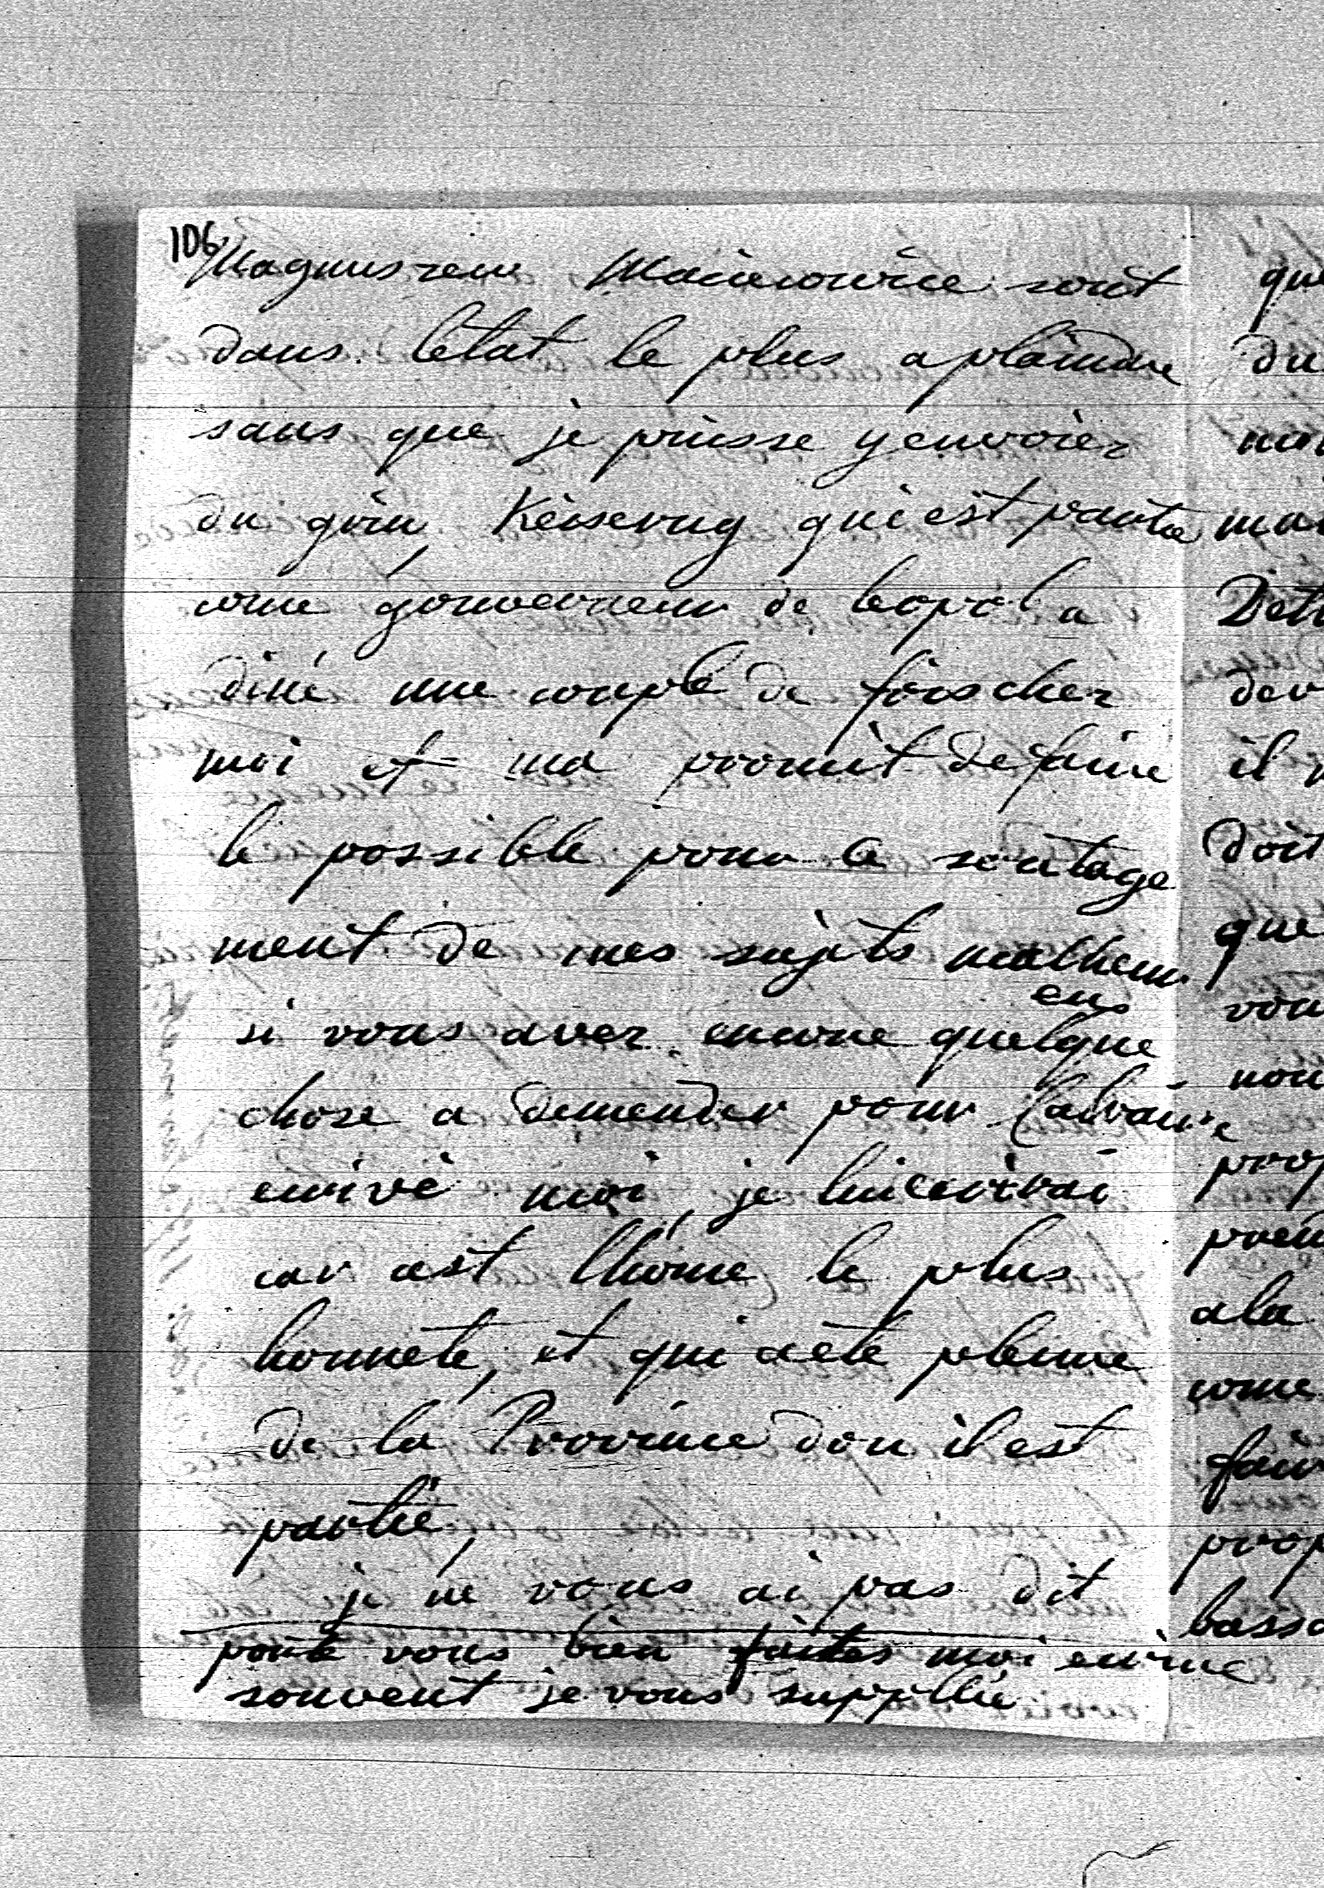 106
dans letat le plus a plaindre
sans que je puisse y envoier
du grin Keiserug qui est partie
come gouverneur de leopol a
diné une couple de fois cher
moi et ma promit de faire
le possible pour le soulage
ment de mes sujets malheur
eus
si vous aver encore quelque
chose a demender pour
ecrivé moi, je lui ecrirai
car cest lhome le plus
honnete, et qui a eté pleuré
de la Province dou il est
partie,
je ne vous ai pas dit
porte vous bien faites moi ecrire
souvent je vous supplie
que
du
mai
dev
il
doit
que
vou
nou
prop
a la
come
fair
prop